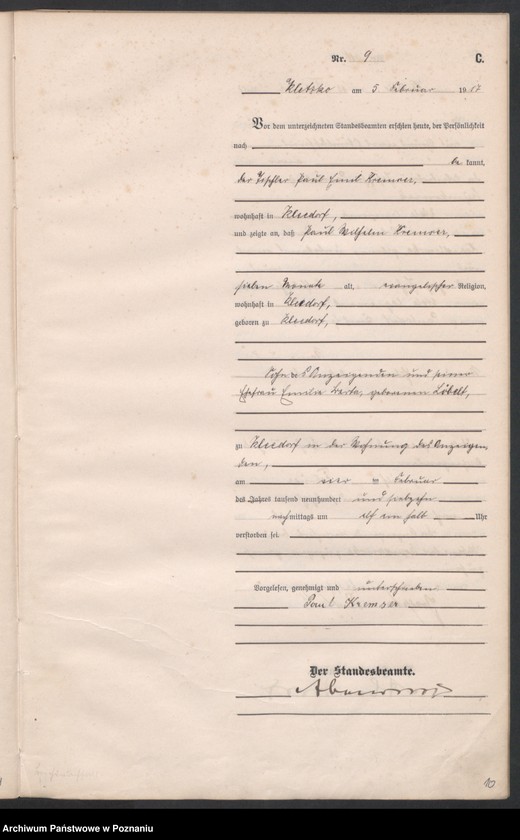 Nr. 9 C.
Kletzko am 5 Februar 1917
Vor dem unterzeichneten Standesbeamten erschien heute, der Persönlichkeit
nach
be kannt,
der Tischler Paul Emil Kremser,
wohnhaft in
und zeigte an, daß Paul Wilhelm Kremser,
sieben Monate alt, evangelischer Religion,
wohnhaft in
geboren zu
Sohn des Anzeigenden und seiner
Ehefrau Emilie Berta, geborenen
zu in der Wohnung des Anzeigen-
den,
am vier ten Februar
des Jahres tausend neunhundert und siebzehn
nachmittags um elf ein halb Uhr
verstorben sei.
Vorgelesen, genehmigt und unterschrieben
Paul Kremser
Der Standesbeamte.
10
Archiwum Państwowe w Poznaniu